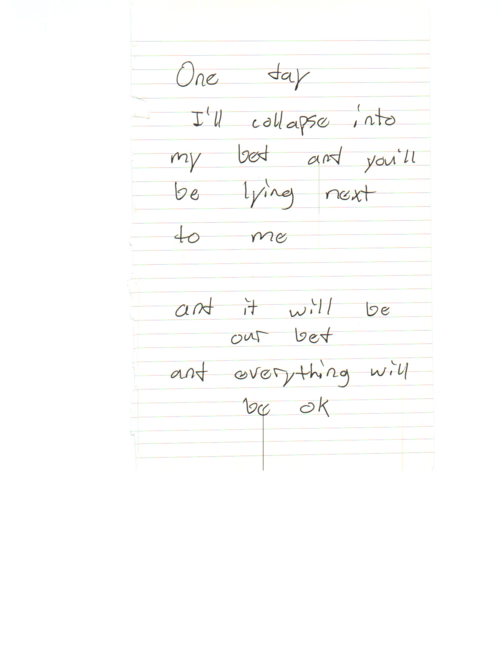 One day
I'll collapse into
my bed and you'll
be lying next
to me
and it will be
our bed
and everything will
be ok